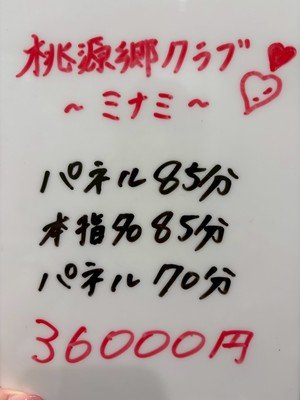 桃源郷クラブ
~ミナミ~
パネル85分
本指名85分
パネル70分
36000円